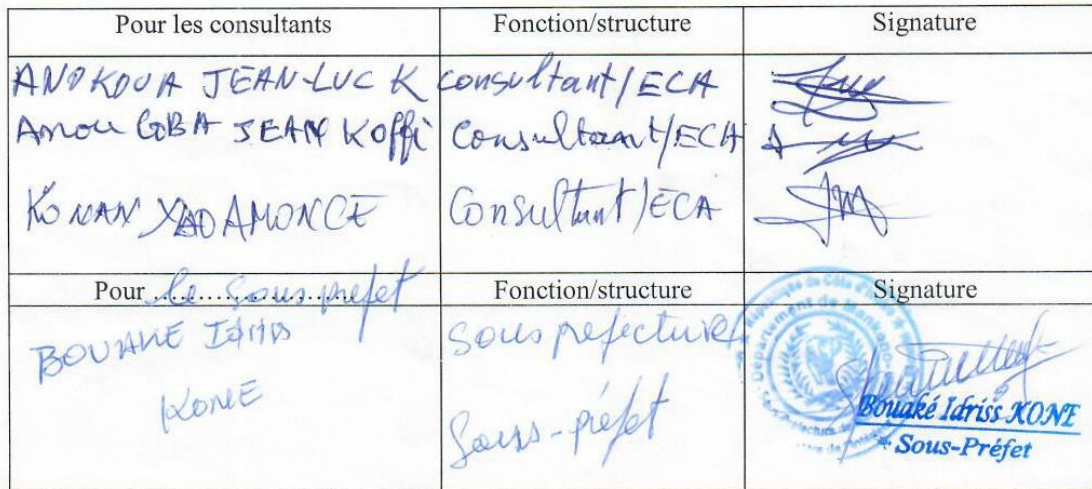 Pour les consultants Fonction/structure Signature
ANOKOUA JEAN-LUC K consultant/ECA
Amou GOBA JEAN Koffi Consultant/ECA
KONAN YAO AMONCE Consultant/ECA
Pour le sous prefet Fonction/structure Signature
BOUAKE Idriss Sous prefecture
KONE Sous-préfet
République de Côte d'Ivoire
Département de Mankono
Bouaké Idriss KONE
Sous-Préfet